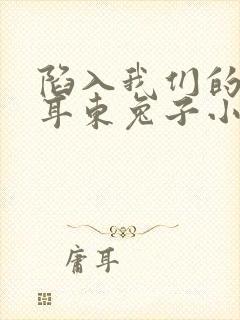 陷入我们的
耳东兔子小
庸耳